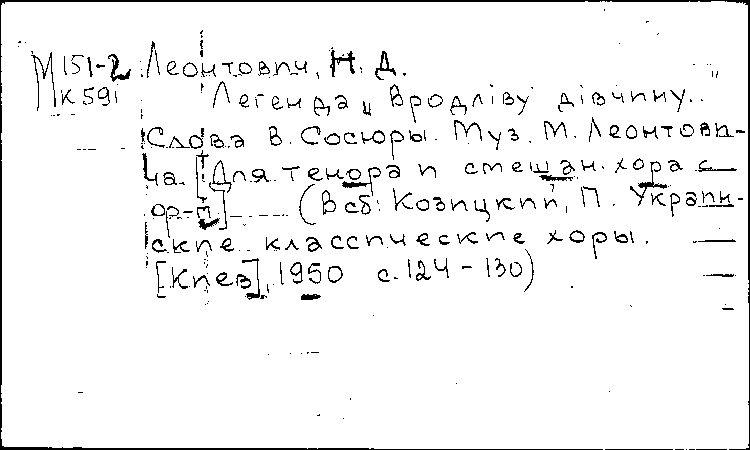 М151-2 Леонтович, Н. Д.
К591 Легенда „Вродліву дівчину..
Слова В. Сосюры. Муз. М. Леонтови-
ча. [Для тенора и смешан. хора с
ор-п] (В сб: Козицкий, П. Украин-
ские классические хоры.
[Киев], 1950 с. 124-130)